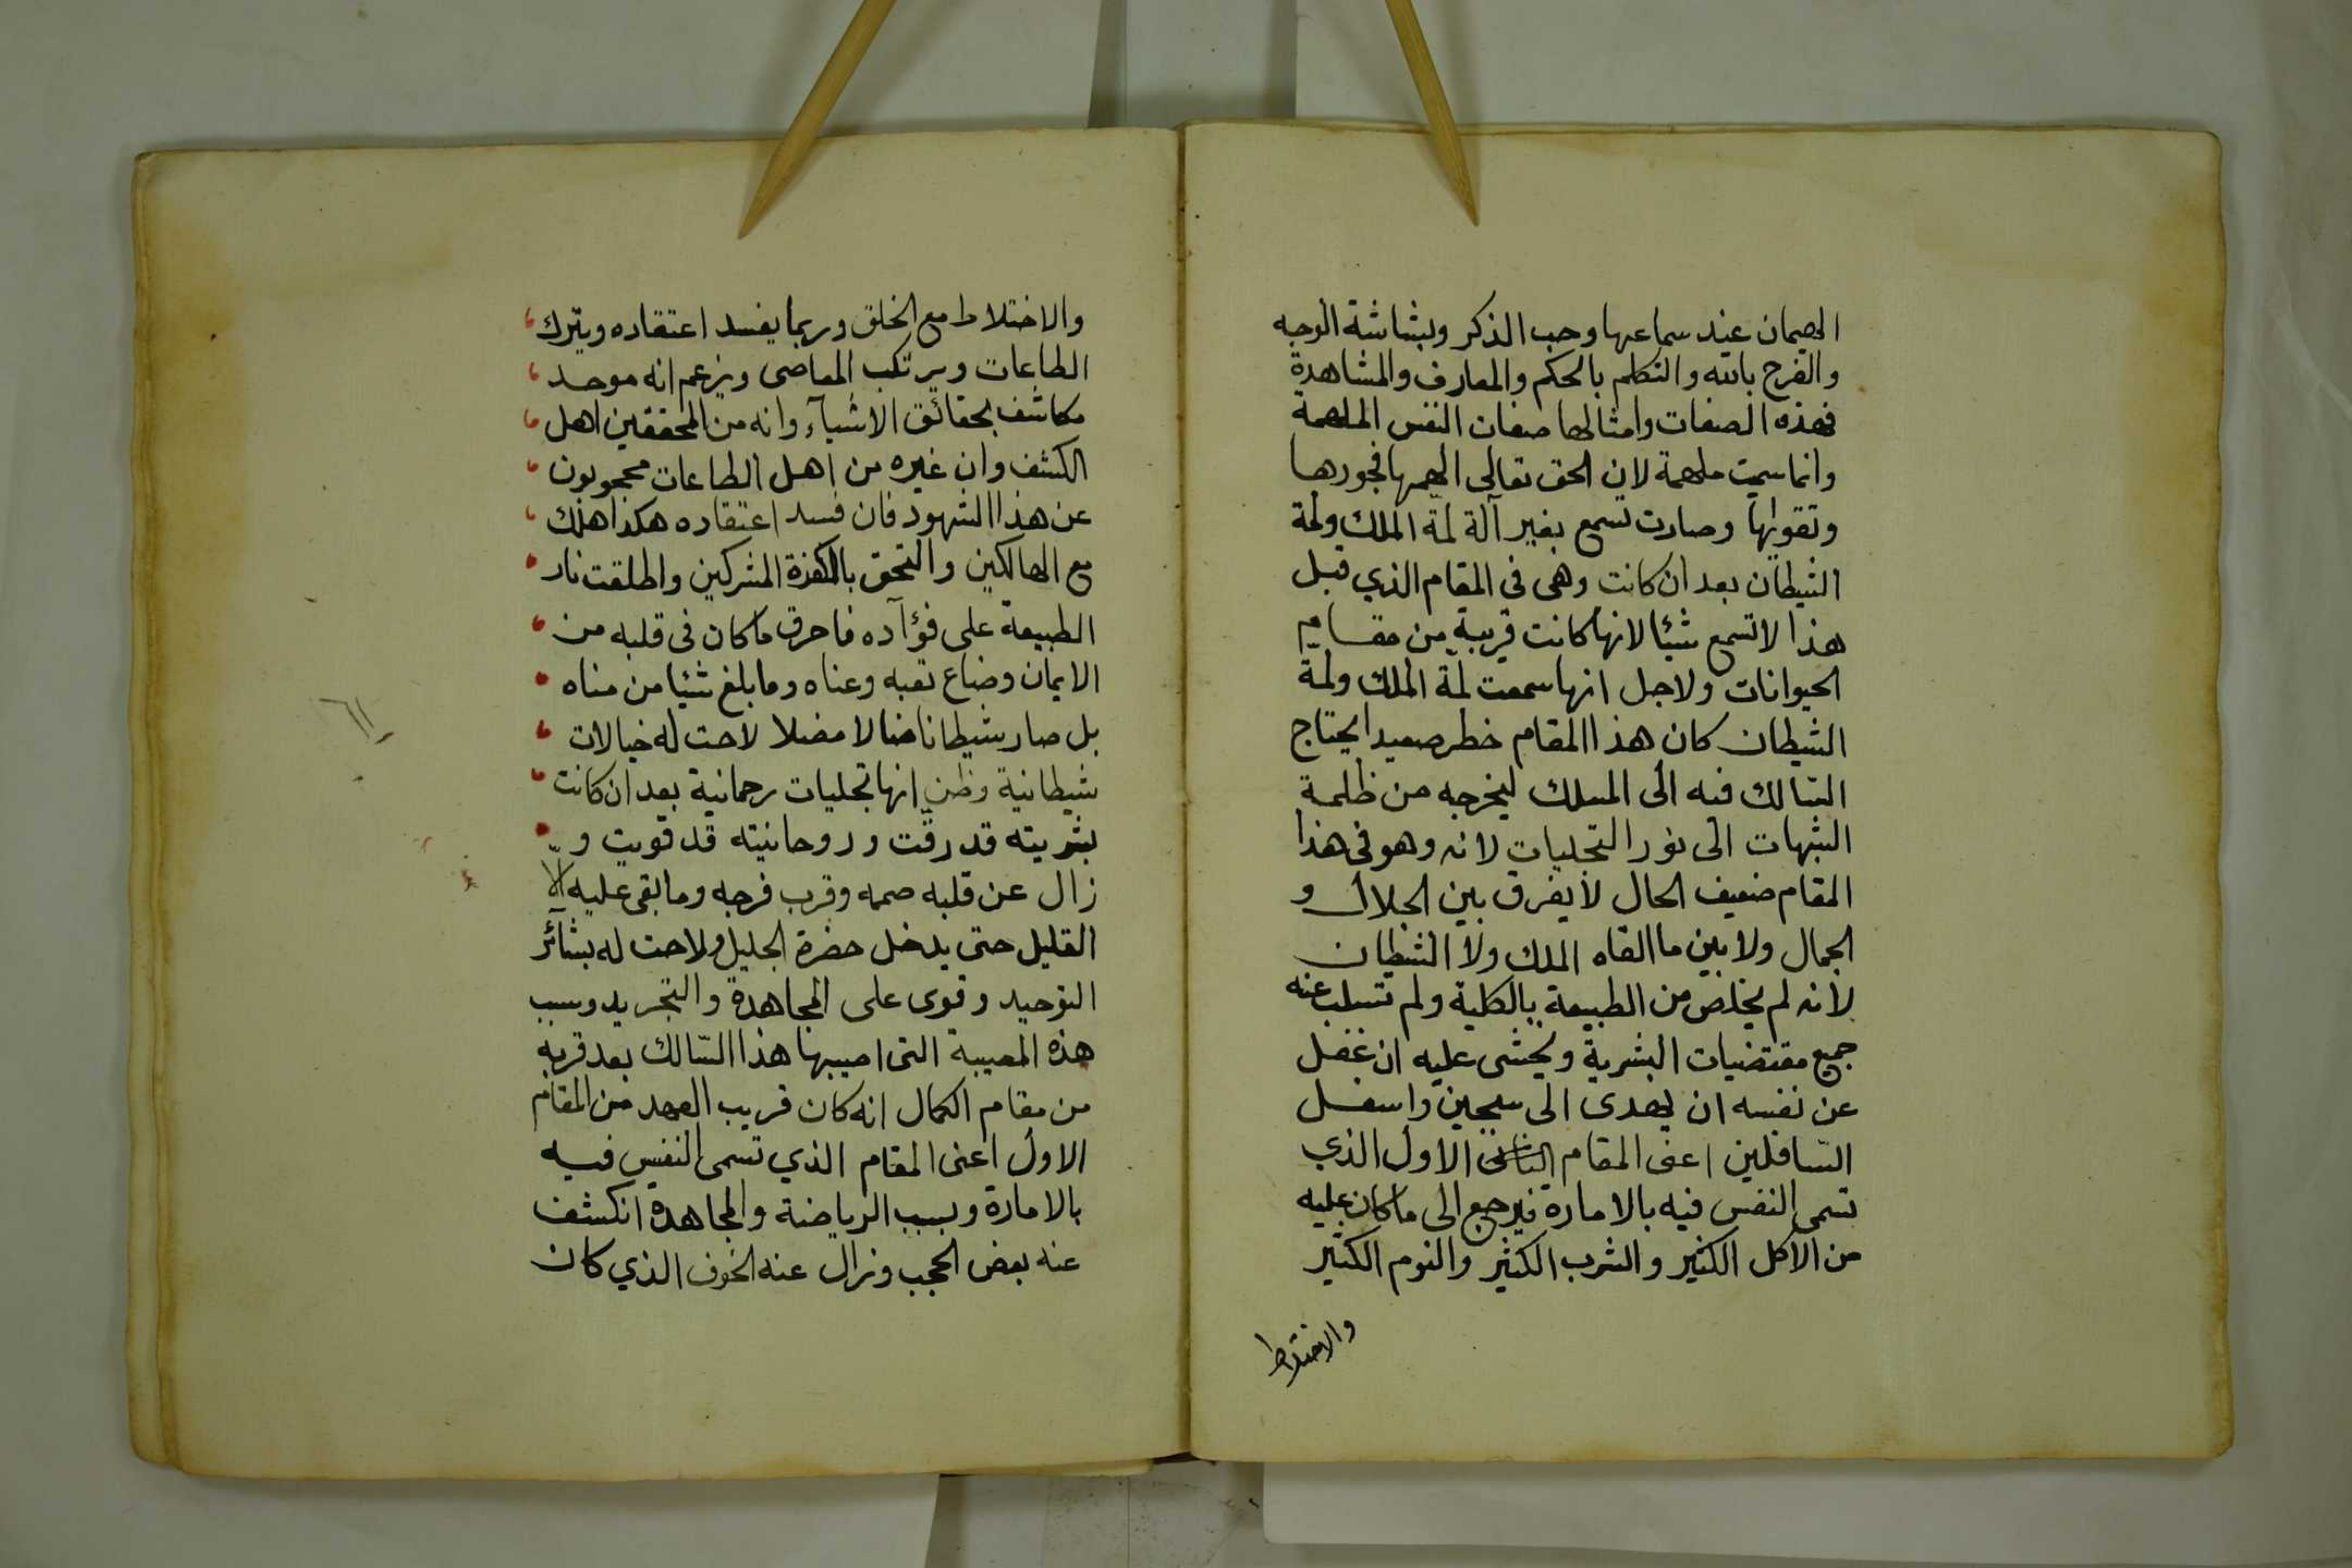 الهيمان عند سماعها وحب الذكر وبشاشة الوجه
والفرح بالله والتكلم بالحكم والمعارف والمشاهدة
فهذه الصفات وامثالها صفات النفس الملهمة
وانما سميت ملهمة لان الحق تعالى الهمها فجورها
وتقويها وصارت تسمع بغير آلة لمة الملك ولمة
الشيطان بعد ان كانت وهى فى المقام الذي قبل
هذا لا تسمع شيئا لانها كانت قريبة من مقام
الحيوانات ولاجل انها سمعت لمة الملك ولمة
الشيطان كان هذا المقام خطر صعيد ايحتاج
السالك فيه الى المسلك ليخرجه من ظلمة
الشبهات الى نور التجليات لانه وهو فى هذا
المقام ضعيف الحال لا يفرق بين الجلال و
الجمال ولا بين ما القاه الملك ولا الشيطان
لانه لم يخلص من الطبيعة بالكلية ولم تسلب عنه
جميع مقتضيات البشرية ويخشى عليه ان غفل
عن نفسه ان يهدى الى سجين واسفل
السّافلين اعنى المقام الثانى الاول الذي
تسمى النفس فيه بالامارة فيرجع الى ما كان عليه
من الاكل الكثير والشرب الكثير والنوم الكثير
والاختلاط
والاختلاط مع الخلق وربما يفسد اعتقاده ويترك
الطاعات ويرتكب المعاصى ويزعم انه موحد
مكاشف بحقائق الاشيآء وانه من المحققين اهل
الكشف وان غيره من اهل الطاعات محجوبون
عن هذا الشهود فان فسد اعتقاده هكذا هلك
مع الهالكين والتحق بالكفرة المشركين واطلقت نار
الطبيعة على فؤآده فاحرق ما كان فى قلبه من
الايمان وضاع تعبه وعناه وما بلغ شيئا من مناه
بل صار شيطانا ضالا مضلا لاحت له خيالات
شيطانية وظن انها تجليات رحمانية بعد ان كانت
بشريته قد رقت وروحانيته قد قويت و
زال عن قلبه صممه وقرب فرجه وما بقى عليه الّا
القليل حتى يدخل حضرة الجليل ولاحت له بشآئر
التوحيد وقوى على المجاهدة والتجريد وسبب
هذه المصيبة التى اصيبها هذا السّالك بعد قربه
من مقام الكمال انه كان قريب العهد من المقام
الاول اعنى المقام الذي تسمى النفس فيه
بالامارة وبسبب الرياضة والمجاهدة انكشف
عنه بعض الحجب وزال عنه الخوف الذي كان